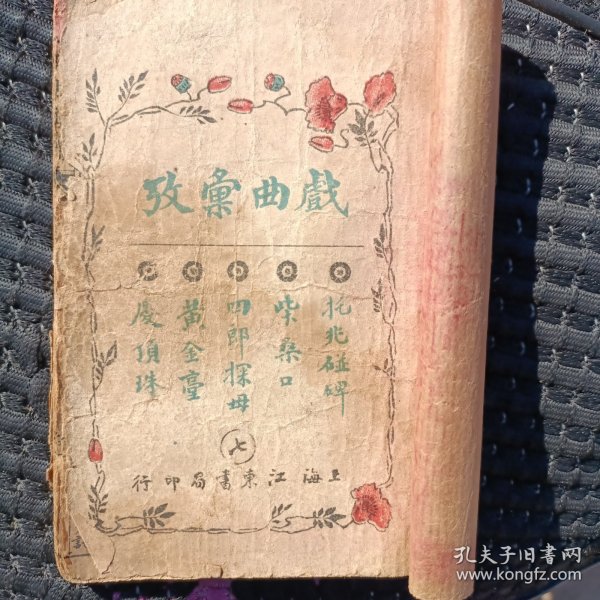 戲曲彙攷
托兆碰碑
柴桑口
四郎探母
黃金臺
慶頂珠
七
上海江東書局印行
孔夫子旧书网
www.kongfz.com